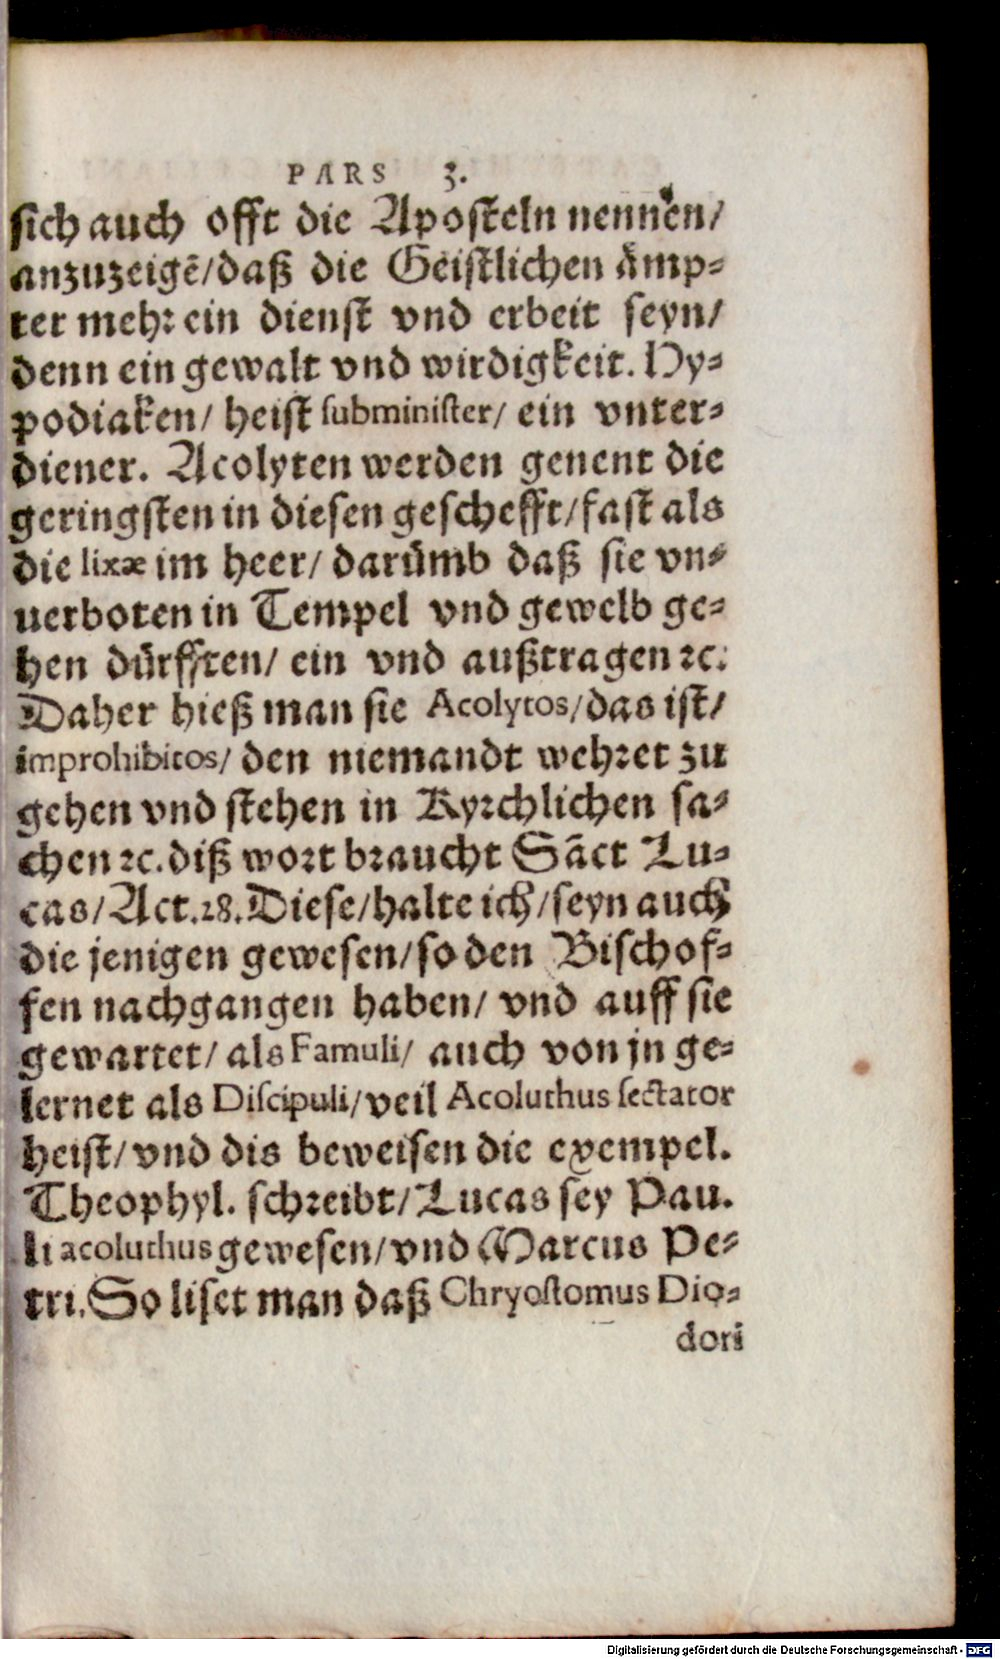 PARS 3.
sich auch offt die Aposteln nennen/
anzuzeigẽ/daß die Geistlichen ämp⸗
ter mehr ein dienst vnd erbeit seyn/
denn ein gewalt vnd wirdigkeit. Hy⸗
podiaken/ heist subminister/ ein vnter⸗
diener. Acolyten werden genent die
geringsten in diesen geschefft/fast als
die lixæ im heer/ darümb daß sie vn⸗
uerboten in Tempel vnd gewelb ge⸗
hen dürfften/ ein vnd außtragen ꝛc.
Daher hieß man sie Acolytos/das ist/
improhibitos/ den niemandt wehret zu
gehen vnd stehen in Kyrchlichen sa⸗
chen ꝛc. diß wort braucht Sãct Lu⸗
cas/Act.28. Diese/halte ich/seyn auch
die jenigen gewesen/so den Bischof⸗
fen nachgangen haben/ vnd auff sie
gewartet/ als Famuli/ auch von jn ge⸗
lernet als Discipuli/veil Acoluthus sectator
heist/vnd dis beweisen die exempel.
Theophyl. schreibt/Lucas sey Pau.
li acoluthus gewesen/vnd Marcus Pe⸗
tri. So liset man daß Chryostomus Dio⸗
dori
Digitalisierung gefördert durch die Deutsche Forschungsgemeinschaft - DFG